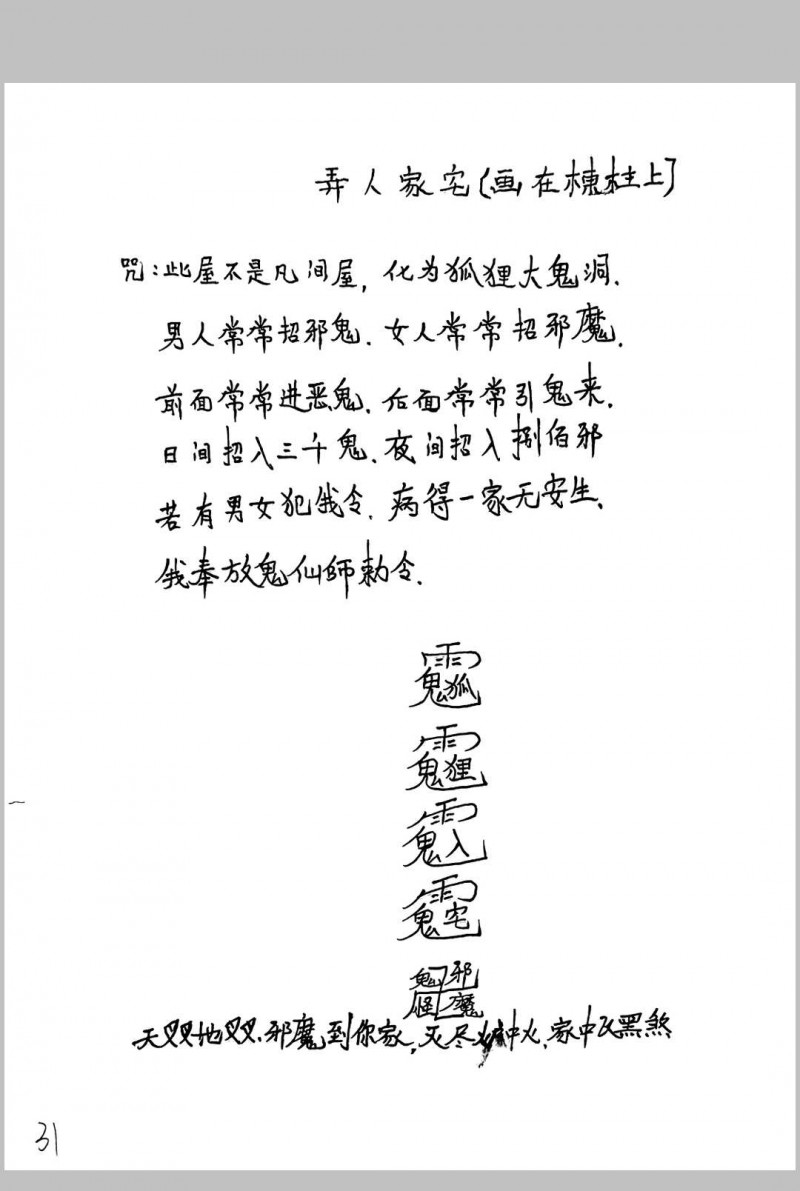 弄人家宅(画在栋柱上)
咒:此屋不是凡间屋,化为狐狸大鬼洞.
男人常常招邪鬼.女人常常招邪魔.
前面常常进恶鬼.后面常常引鬼来.
日间招入三千鬼.夜间招入捌佰邪
若有男女犯我令.病得一家无安生.
我奉放鬼仙师勅令.
雨鬼狐
雨鬼狸
雨鬼入
雨鬼宅
鬼邪
怪魔
天叒地叒.邪魔到你家,灭尽中火.家中黑煞
31